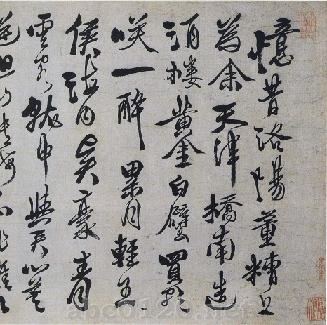 憶昔洛陽董糟丘
為余天津橋南造
酒樓黃金白璧買歌
笑一醉累月輕王
侯海內賢豪青
雲客就中與君心莫